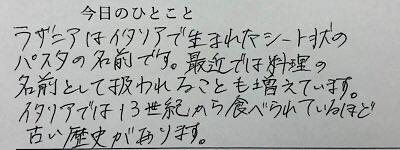 今日のひとこと
ラザニアはイタリアで生まれたシート状の
パスタの名前です。最近では料理の
名前として扱われることも増えています。
イタリアでは13世紀から食べられているほど
古い歴史があります。